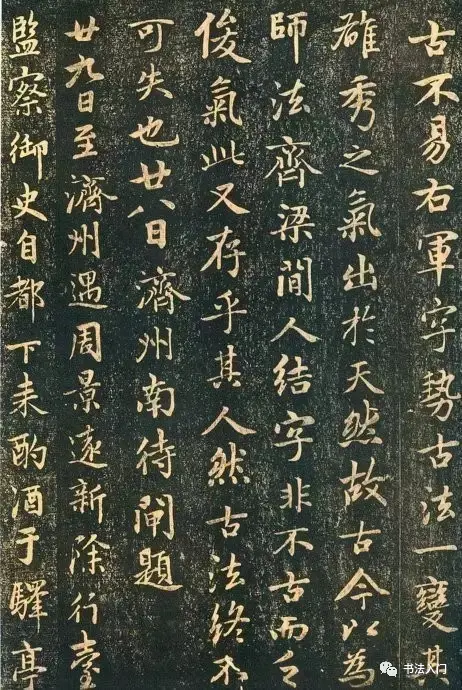 古不易右軍字勢古法一變其
雄秀之氣出於天然故古今以為
師法齊梁間人結字非不古而乏
俊氣此又存乎其人然古法終不
可失也廿八日濟州南待閘題
廿九日至濟州遇周景遠新除行臺
監察御史自都下来酌酒于驛亭
书法入门